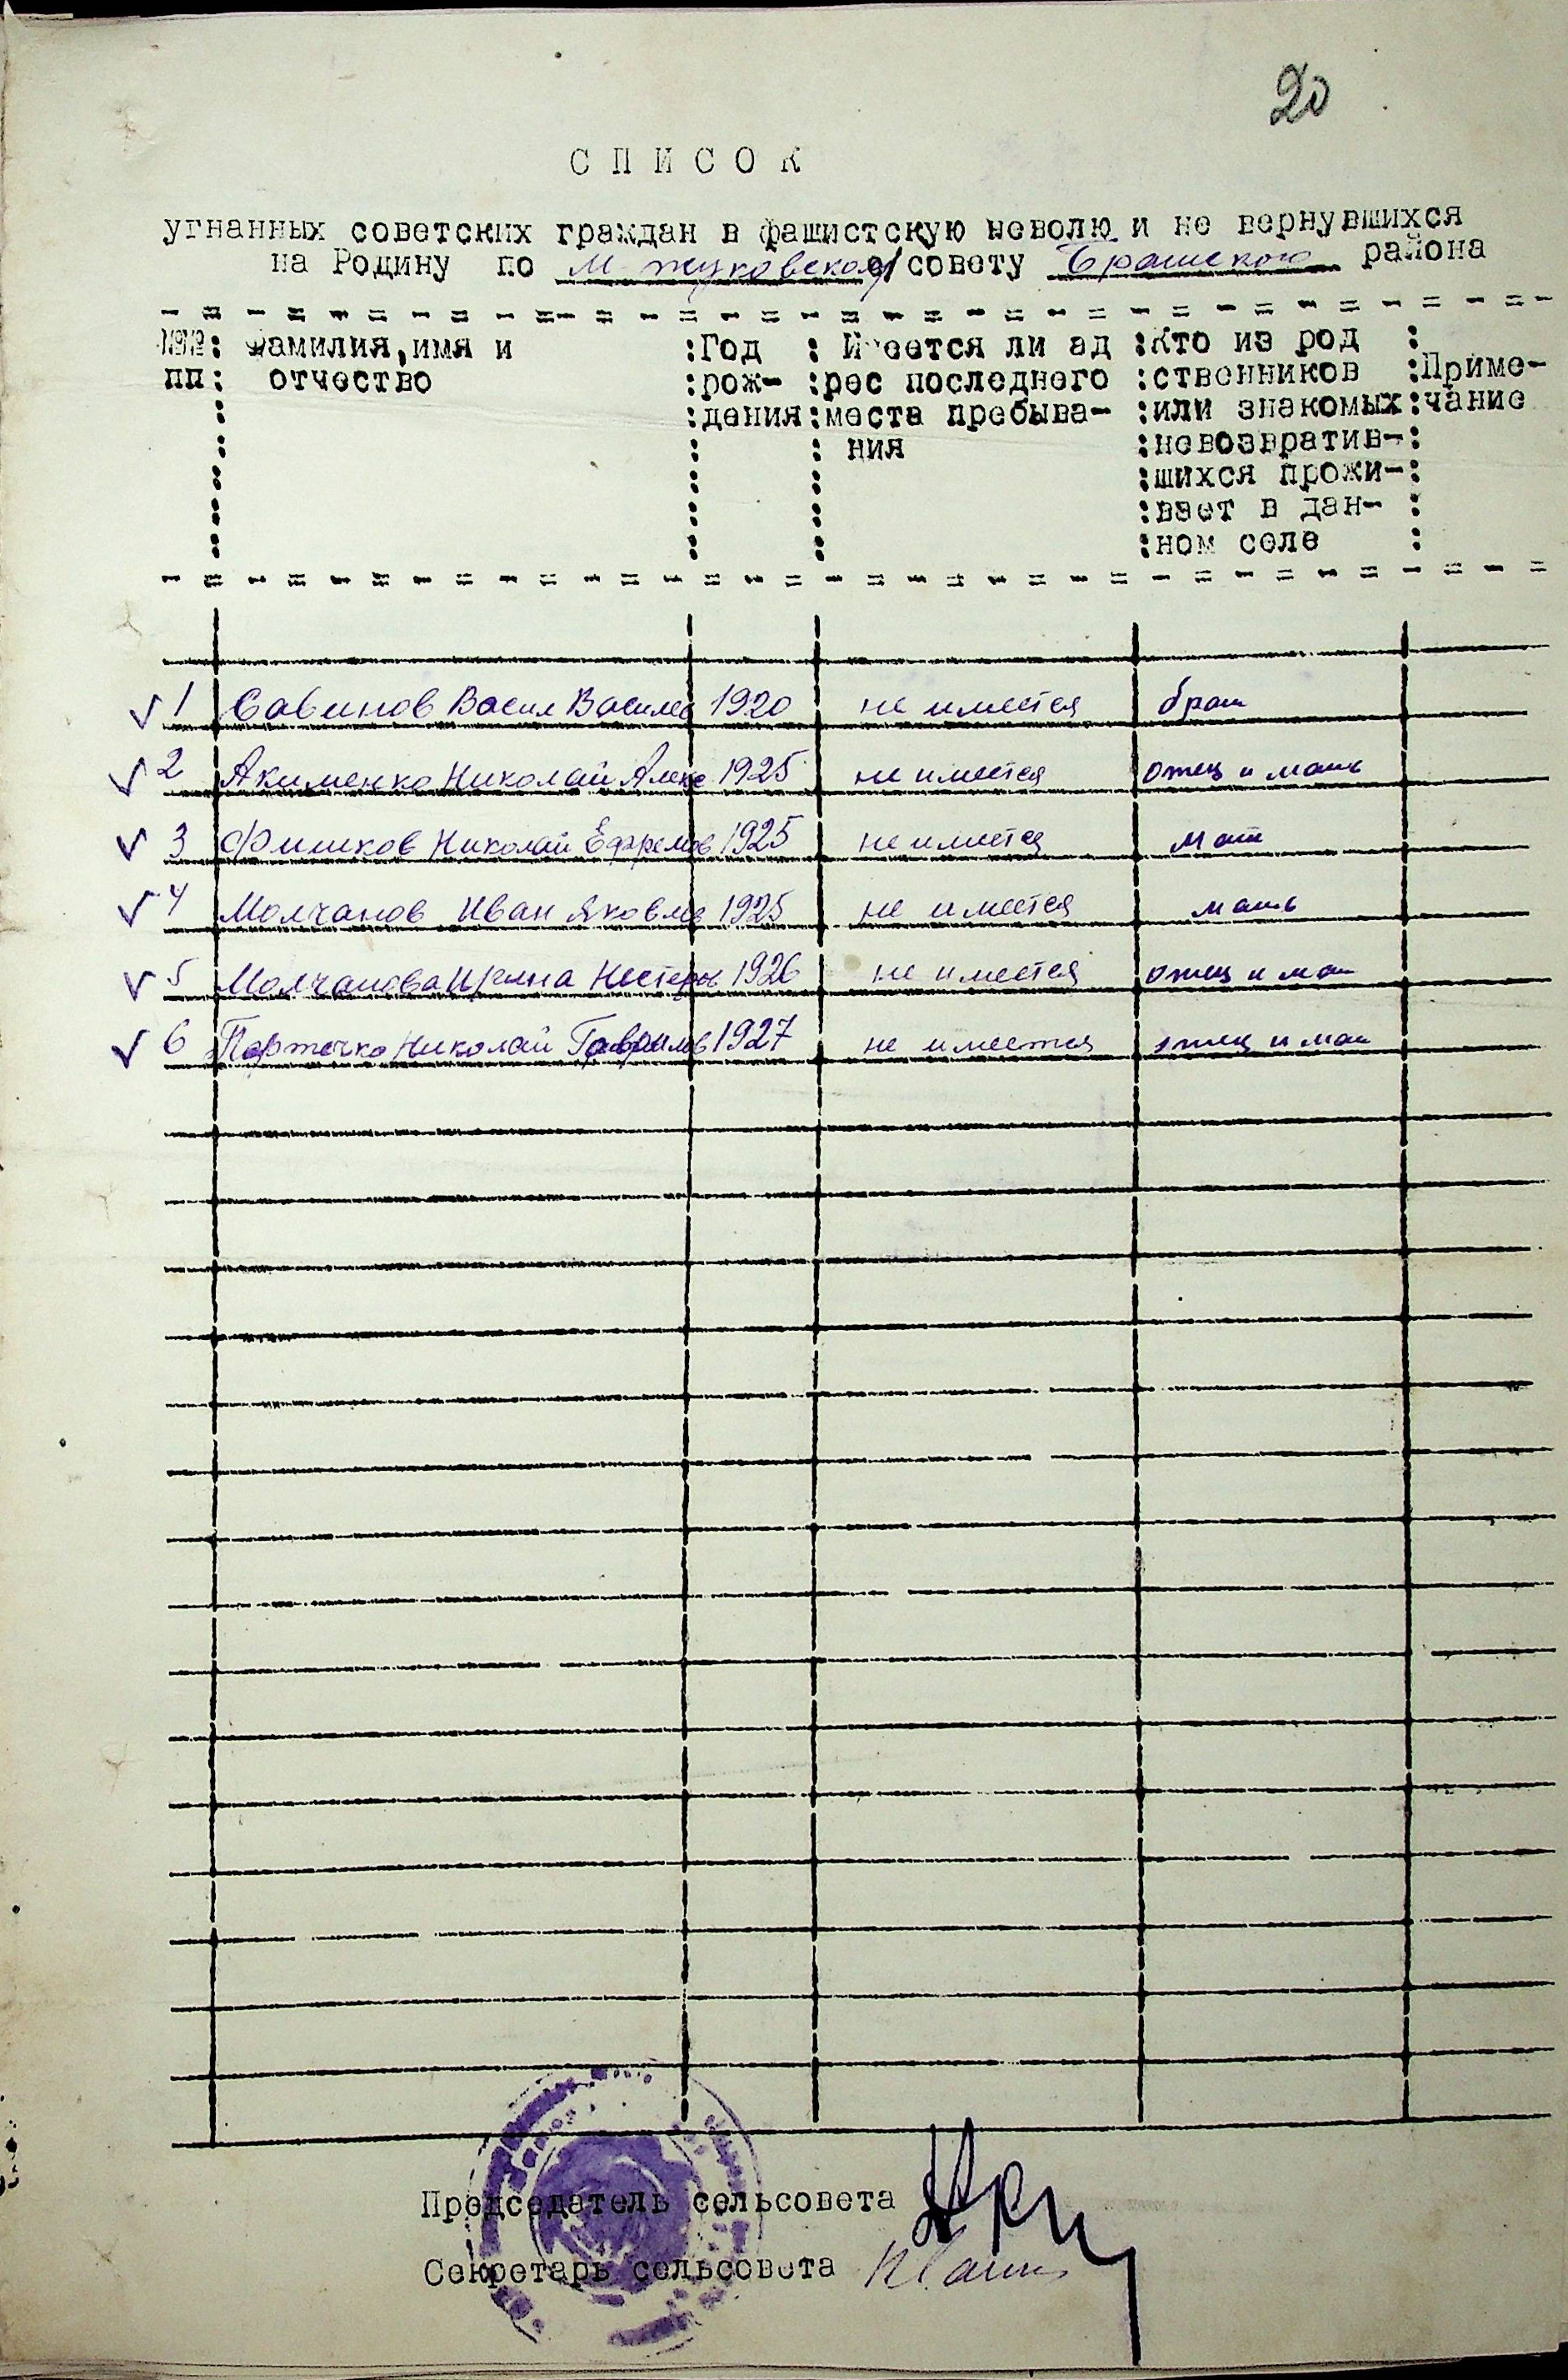 20
СПИСОК
угнанных советских граждан в фашистскую неволю и не вернувшихся
на Родину по М жуковском с/совету Брашского района
№№ : Фамилия, имя и : Год : Имеется ли ад : Кто из род :
пп : отчество : рож- : рес последнего : ственников : Приме-
: : дения : места пребыва- : или знакомых : чание
: : : ния : невозвратив- :
: шихся прожи- :
: вает в дан- :
: ном селе :
√ 1 Савинов Васил Василев 1920 не имеется брат
√ 2 Акименко Николай Алекс 1925 не имеется отец и мать
√ 3 Фишков Николай Ефремов 1925 не имеется мать
√ 4 Молчанов Иван Яковле 1925 не имеется мать
√ 5 Молчанова Ирина Нестеров 1926 не имеется отец и мат
√ 6 Портечко Николай Гаврилов 1927 не имеется отец и мат
Председатель сельсовета
Секретарь сельсовета